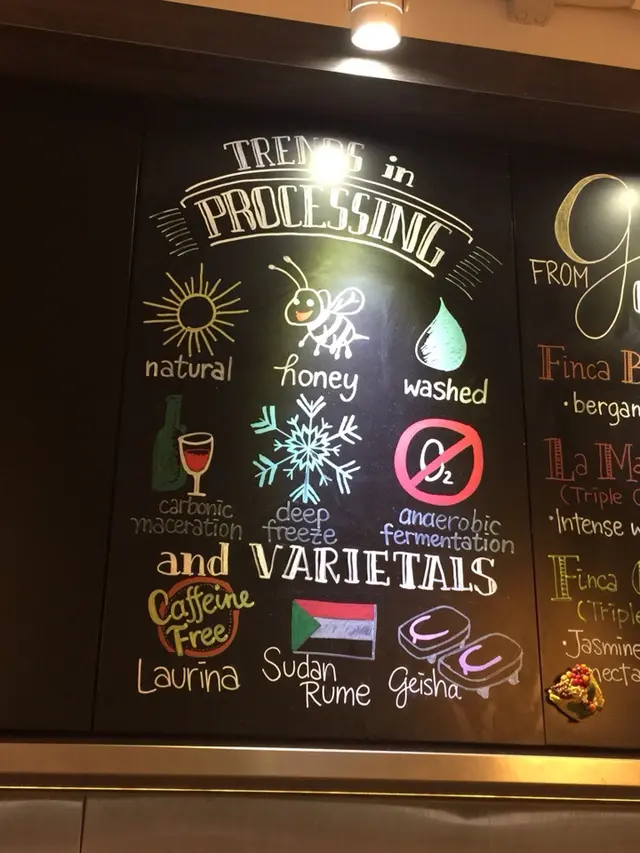 TRENDS in
PROCESSING
natural
honey
washed
carbonic
maceration
deep
freeze
O₂
anaerobic
fermentation
and VARIETALS
Caffeine
Free
Laurina
Sudan
Rume
Geisha
FROM
Finca
La
(Triple
•Intense
Finca
Jasmine